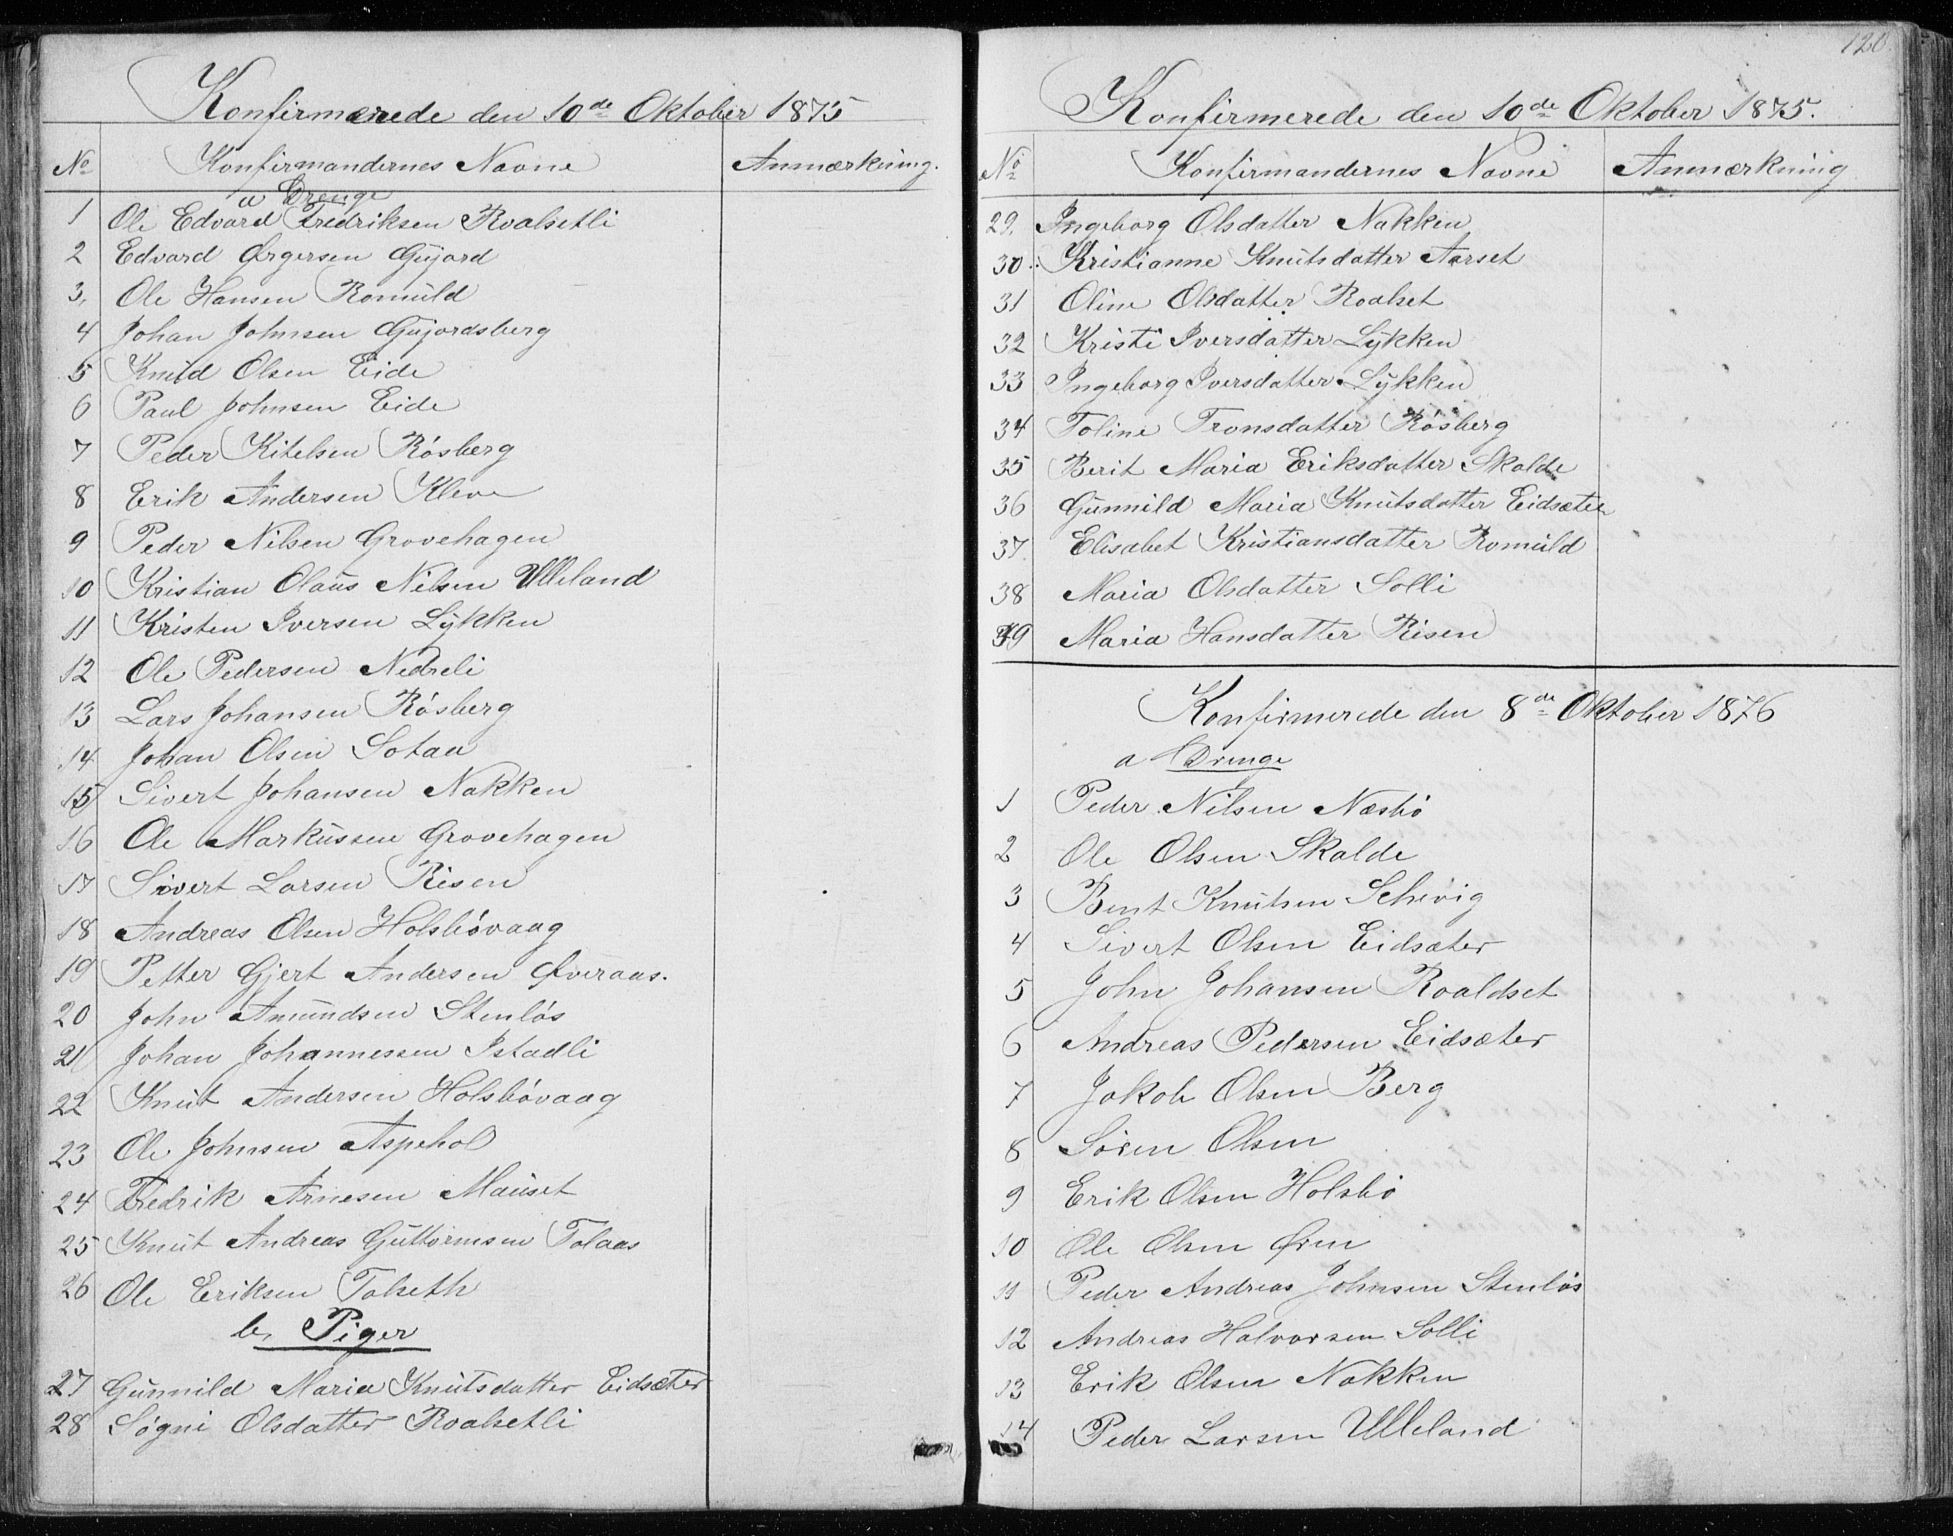 Konfirmerede den 10de Oktober 1875
No Konfirmandernes Navne Anmærkning.
a Drenge
1 Ole Edvard Fredriksen Roalsetli
2 Edvard Ørgersen Gujord
3, Ole Hansen Romuld
4 Johan Johnsen Gujordsberg
5 Knud Olsen Eide
6 Paul Johnsen Eide
7 Peder Kitelsen Rösberg
8 Erik Andersen Kleve
9 Peder Nilsen Grovehagen
10 Kristian Olaus Nilsen Ulleland
11 Kristen Iversen Lykken
12 Ole Pedersen Nedreli
13 Lars Johansen Rösberg
14 Johan Olsen Sotaa
15 Sivert Johansen Nakken
16 Ole Markussen Grovehagen
17 Sivert Larsen Risen
18 Andreas Olsen Holsbövaag
19 Petter Gjert Andersen Øveraas.
20 John Amundsen Stenlös
21 Johan Johannessen Istadli
22 Knut Andersen Holsbövaag
23 Ole Johnsen Aspehol
24 Fredrik Arnesen Mauset
25 Knut Andreas Guttormsen Tolaas
26 Ole Eriksen Talseth
b, Piger
27 Gunnild Maria Knutsdatter Eidsæter
28 Søgni Olsdatter Roalsetli
120.
Konfirmerede den 10de Oktober 1875.
No Konfirmandernes Navne Anmærkning
29. Ingeborg Olsdatter Nakken
30. Kristianne Knutsdatter Aarset
31 Oline Olsdatter Roalset
32 Kristi Iversdatter Lykken
33 Ingeborg Iversdatter Lykken
34 Toline Tronsdatter Rösberg
35 Berit Maria Eriksdatter Skalde
36 Gunnild Maria Knutsdatter Eidsæter
37 Elisabet Kristiansdatter Romuld
38 Maria Olsdatter Solli
39 Maria Hansdatter Risen
Konfirmerede den 8de Oktober 1876
a Drenge
1 Peder Nilsen Næsbö
2 Ole Olsen Skalde
3 Bent Knutsen Schevig
4 Sivert Olsen Eidsæter
5 John Johansen Roaldset
6 Andreas Pedersen Eidsæter
7 Jakob Olsen Berg
8 Sören Olsen
9 Erik Olsen Holsbö
10 Ole Olsen Øren
11 Peder Andreas Johnsen Stenlös
12 Andreas Halvorsen Solli
13 Erik Olsen Nakken
14 Peder Larsen Ulleland